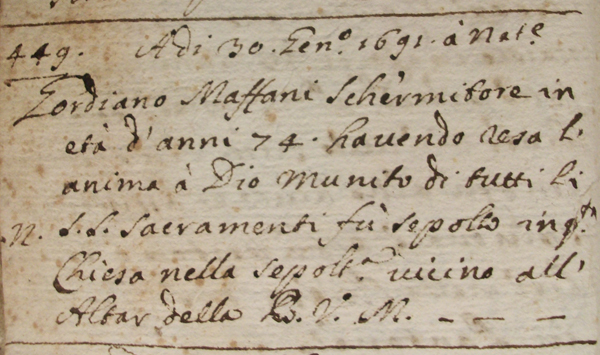 449. Adi 30. Zen.º 1691. à Nat.e
Zordiano Maffani Schermitore in
età d'anni 74. havendo resa l'
anima à Dio munito di tutti li
N. S.S. Sacramenti fù sepolto in q.ta
Chiesa nella sepolt.a vicino all'
Altar della B. V. M. _ _ _